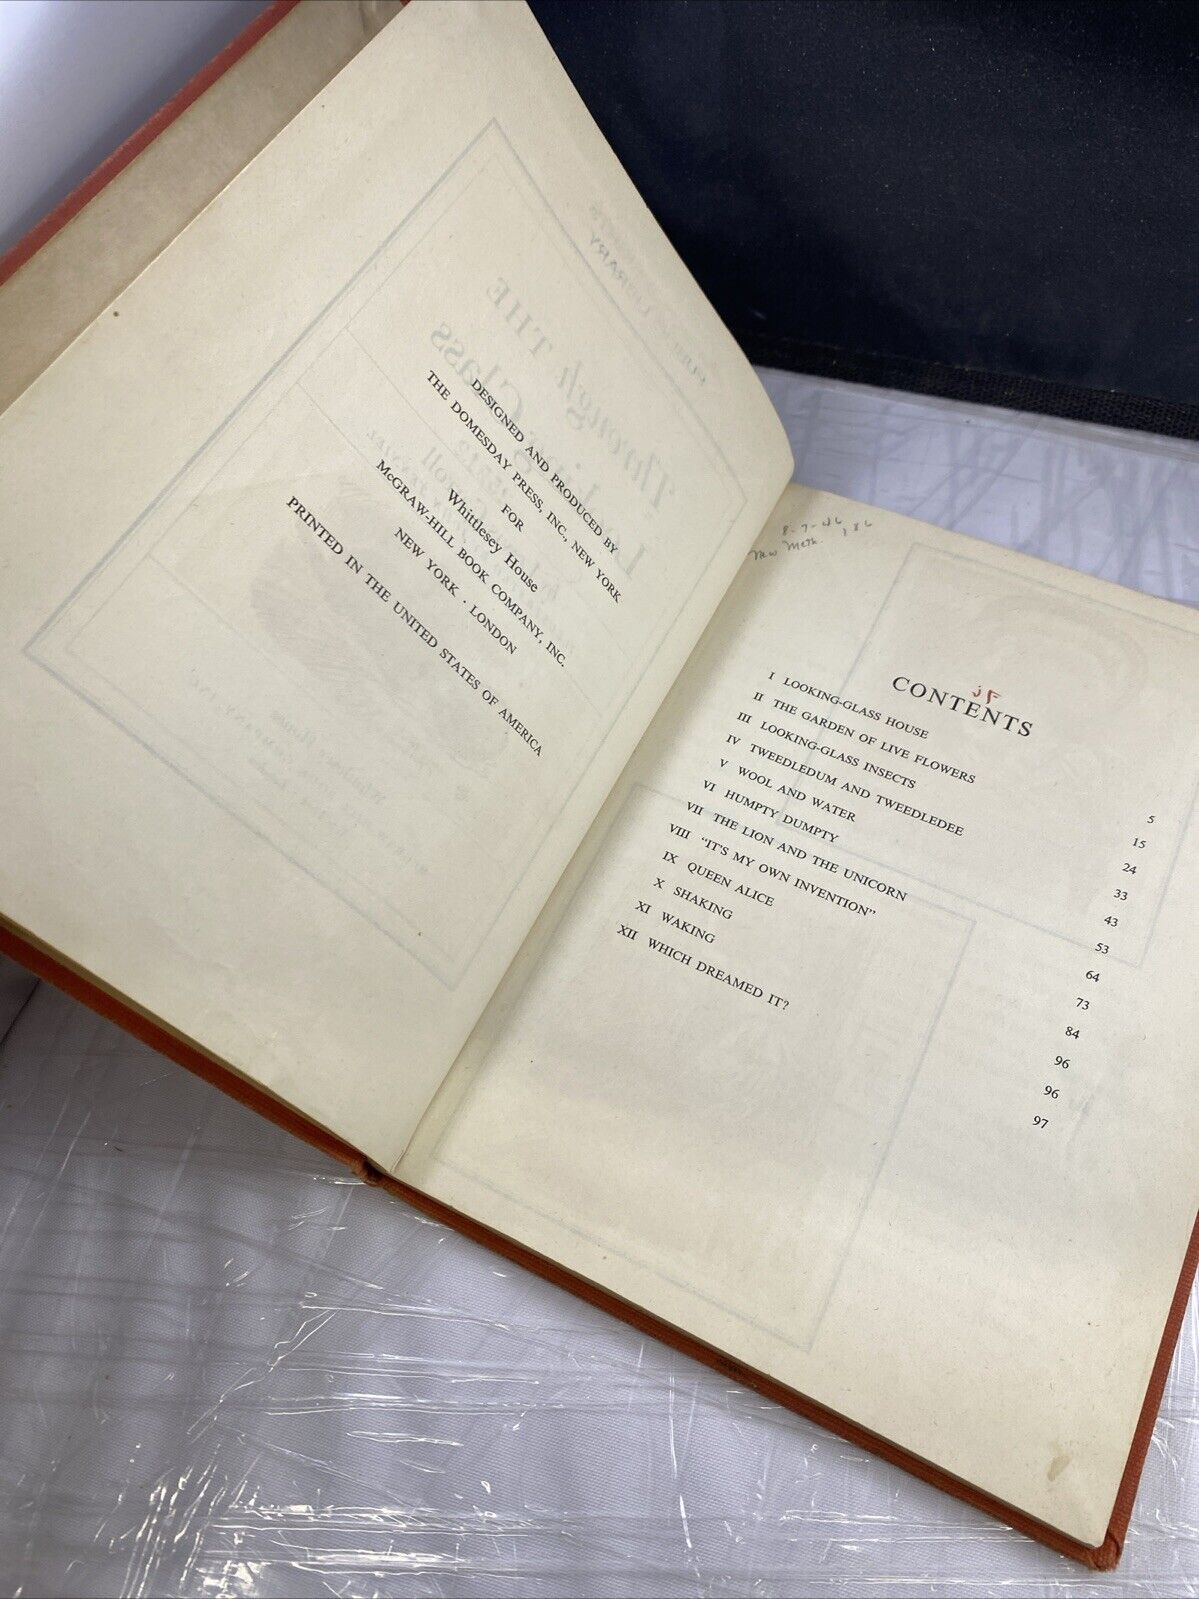 DESIGNED AND PRODUCED BY
THE DOMESDAY PRESS, INC., NEW YORK
FOR
Whittlesey House
McGRAW-HILL BOOK COMPANY, INC.
NEW YORK · LONDON
PRINTED IN THE UNITED STATES OF AMERICA
8-7-46
New Meth. 186
jF
CONTENTS
I LOOKING-GLASS HOUSE 5
II THE GARDEN OF LIVE FLOWERS 15
III LOOKING-GLASS INSECTS 24
IV TWEEDLEDUM AND TWEEDLEDEE 33
V WOOL AND WATER 43
VI HUMPTY DUMPTY 53
VII THE LION AND THE UNICORN 64
VIII "IT'S MY OWN INVENTION" 73
IX QUEEN ALICE 84
X SHAKING 96
XI WAKING 96
XII WHICH DREAMED IT? 97